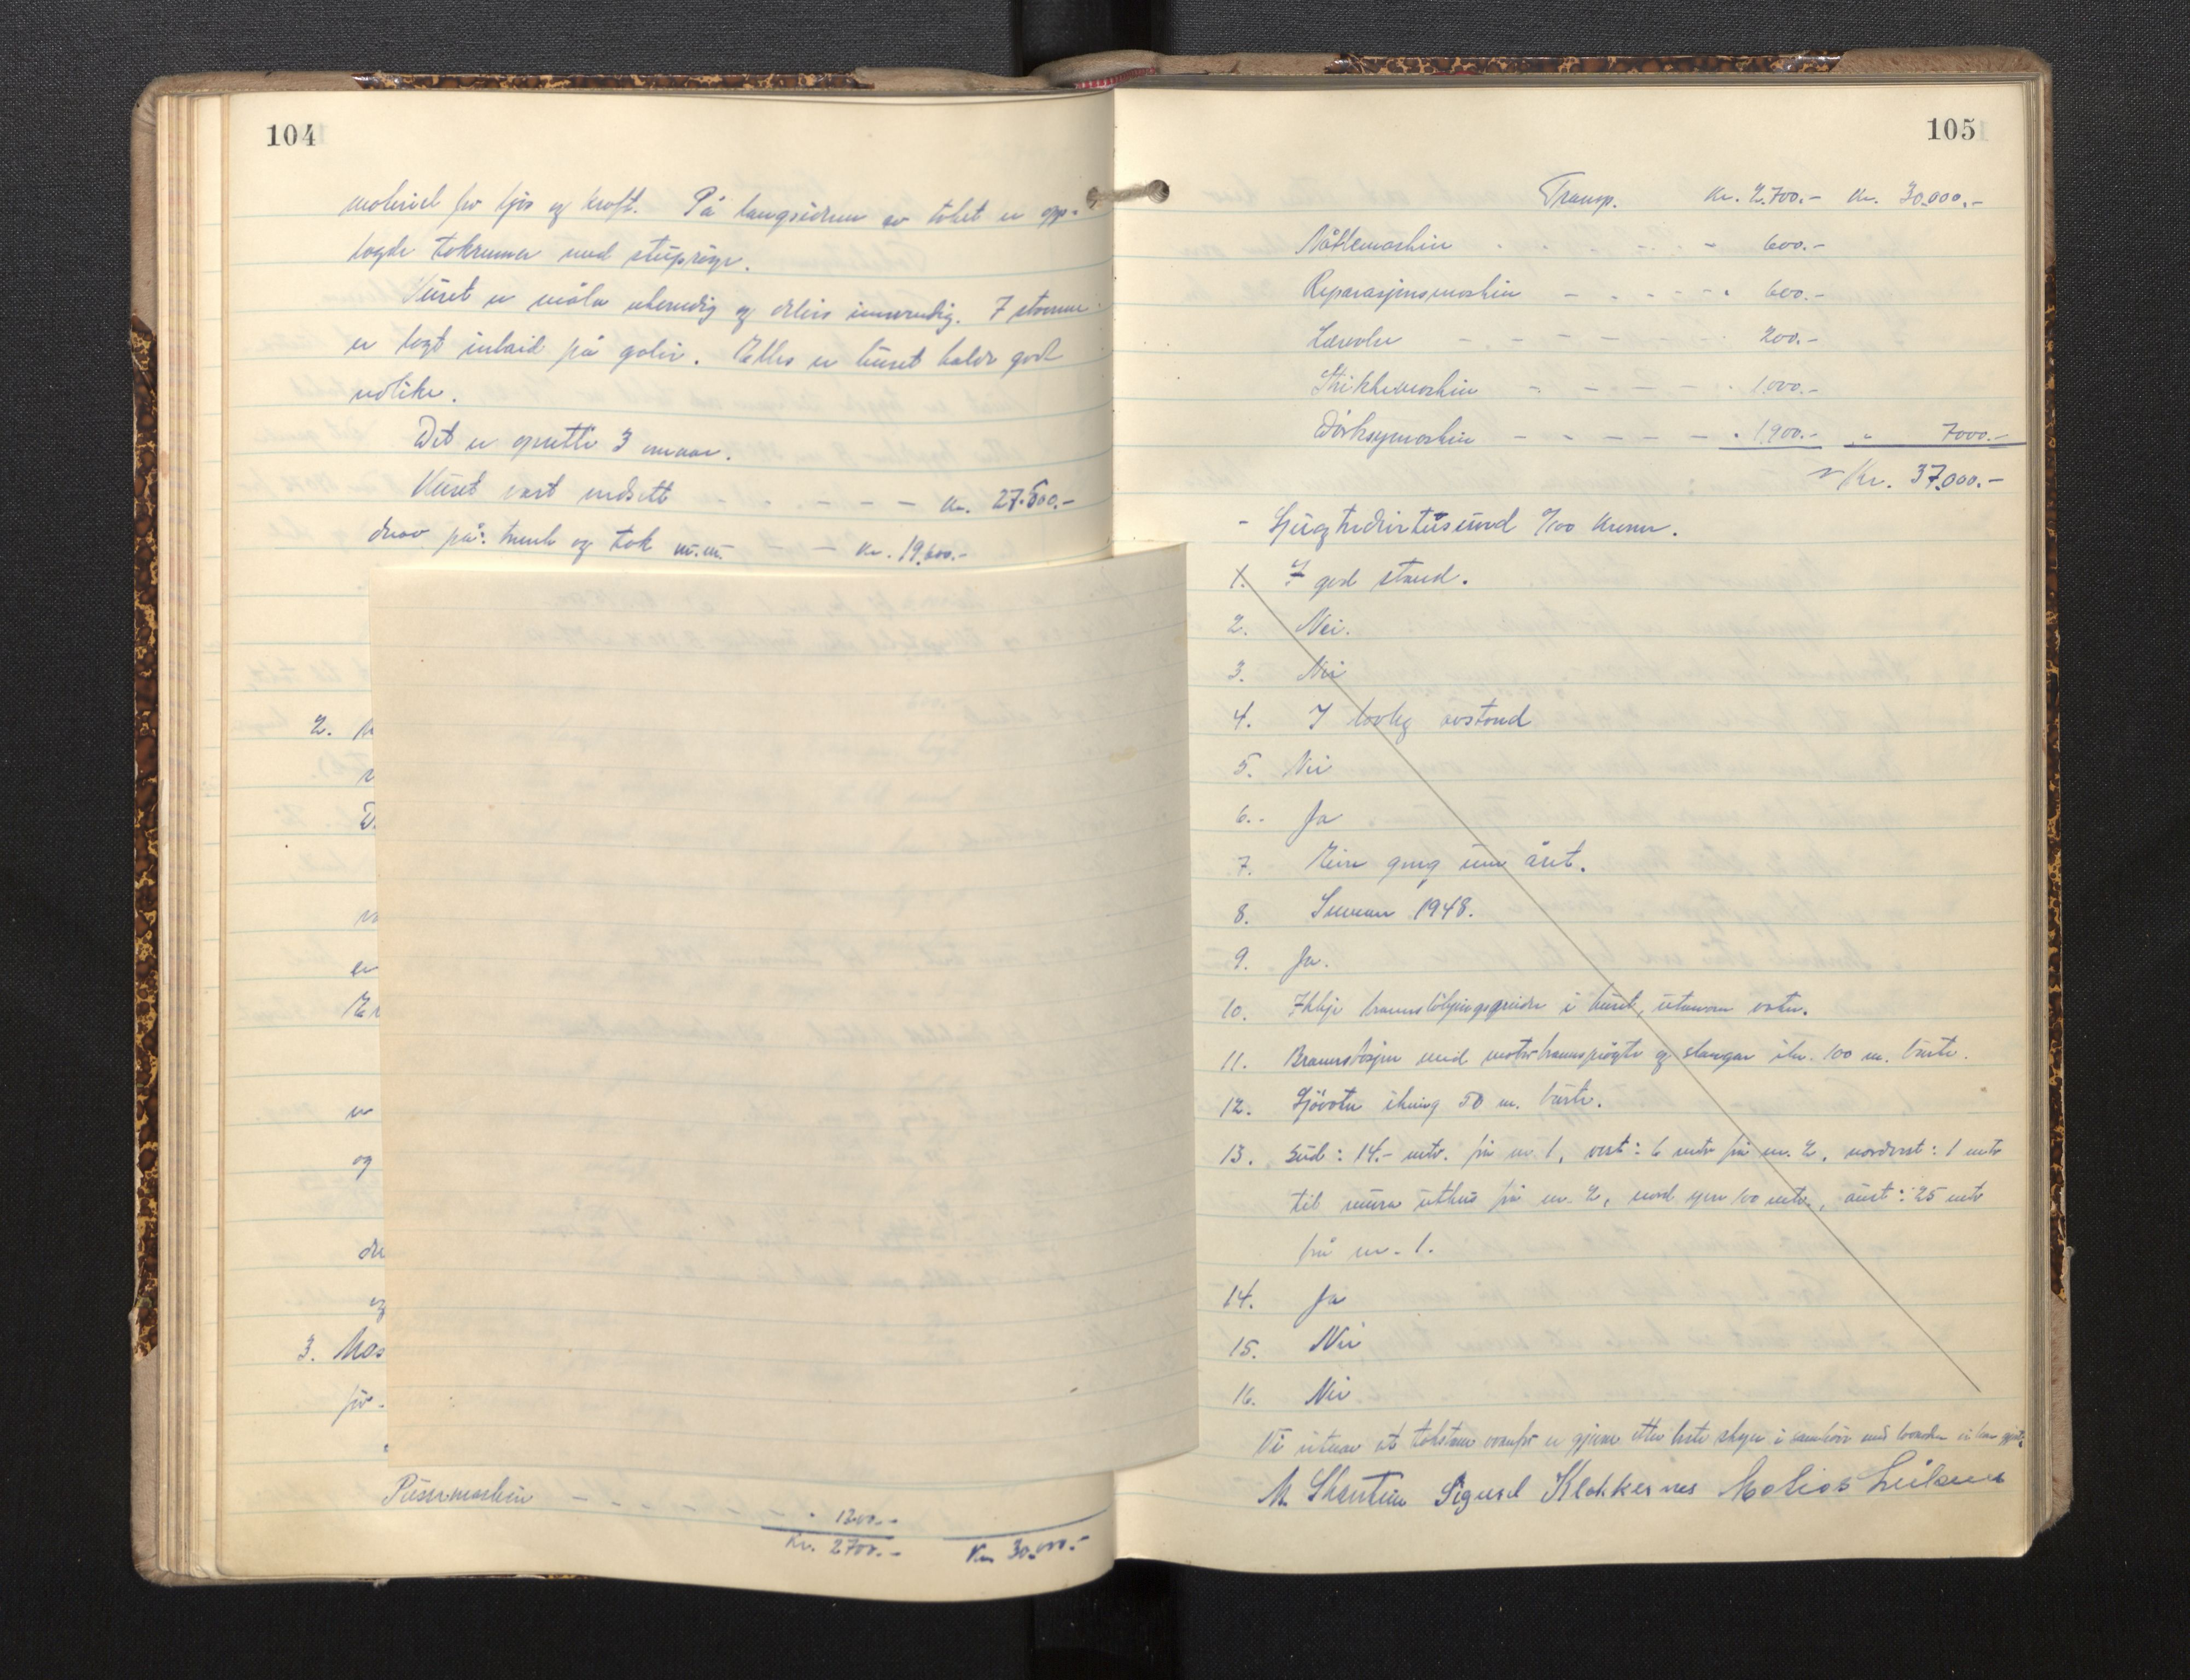 104
materiel for ljos og kraft. På langsidene av taket er opp-
lagde takrenner med stuprøyr.
Huset er måla utvendig og delvis innvendig. 7 stovene
er lagt inlaid på golv. Elles er huset halde god
vedlike.
Det er opsette 3 omnar.
Huset vart verdsett - - - - - - Kr. 27.500.-
derav på: treverk og tak m.m. - - Kr. 19.600.-
2.
D.
er
er
og
og
3. Mas
for
Pussemaskin - - - - - - - 1200.-
Kr. 2700.- Kr. 30.000.-
105
Transp. Kr. 2.700.- Kr. 30.000.-
Nåtlemaskin - - - - - - 600.-
Reparasjonsmaskin - - - - - - 600.-
Lærvalse - - - - - - 200.-
Stikkemaskin - - - - - - 1.000.-
Dørksymaskin - - - - - - 1.900.- " 7000.-
Kr. 37.000.-
- Sjuogtredivetusund 0/100 kroner.
1. I god stand.
2. Nei.
3. Nei
4. I lovleg avstand
5. Nei
6. Ja
7. Ein gong um året.
8. Sumaren 1948.
9. Ja.
10. Ikkje brannsløkjingsgreider i huset, utanom vatn.
11. Brannstasjon med motorbrannsprøyte og slangar ikr. 100 m. burte.
12. Sjøvatn ikring 50 m. burte.
13. Sud: 14.- mtr. frå nr 1, vest: 6 mtr frå nr. 2, nordvest: 1 mtr
til mura uthus frå nr. 2, nord yver 100 mtr., aust: 25 mtr
frå nr. 1.
14. Ja
15. Nei
16. Nei
Vi vitnar at takstane ovanfor er gjorne etter beste skyn i samhøve med
M. Skarstein Sigurd Klokkernes Matias